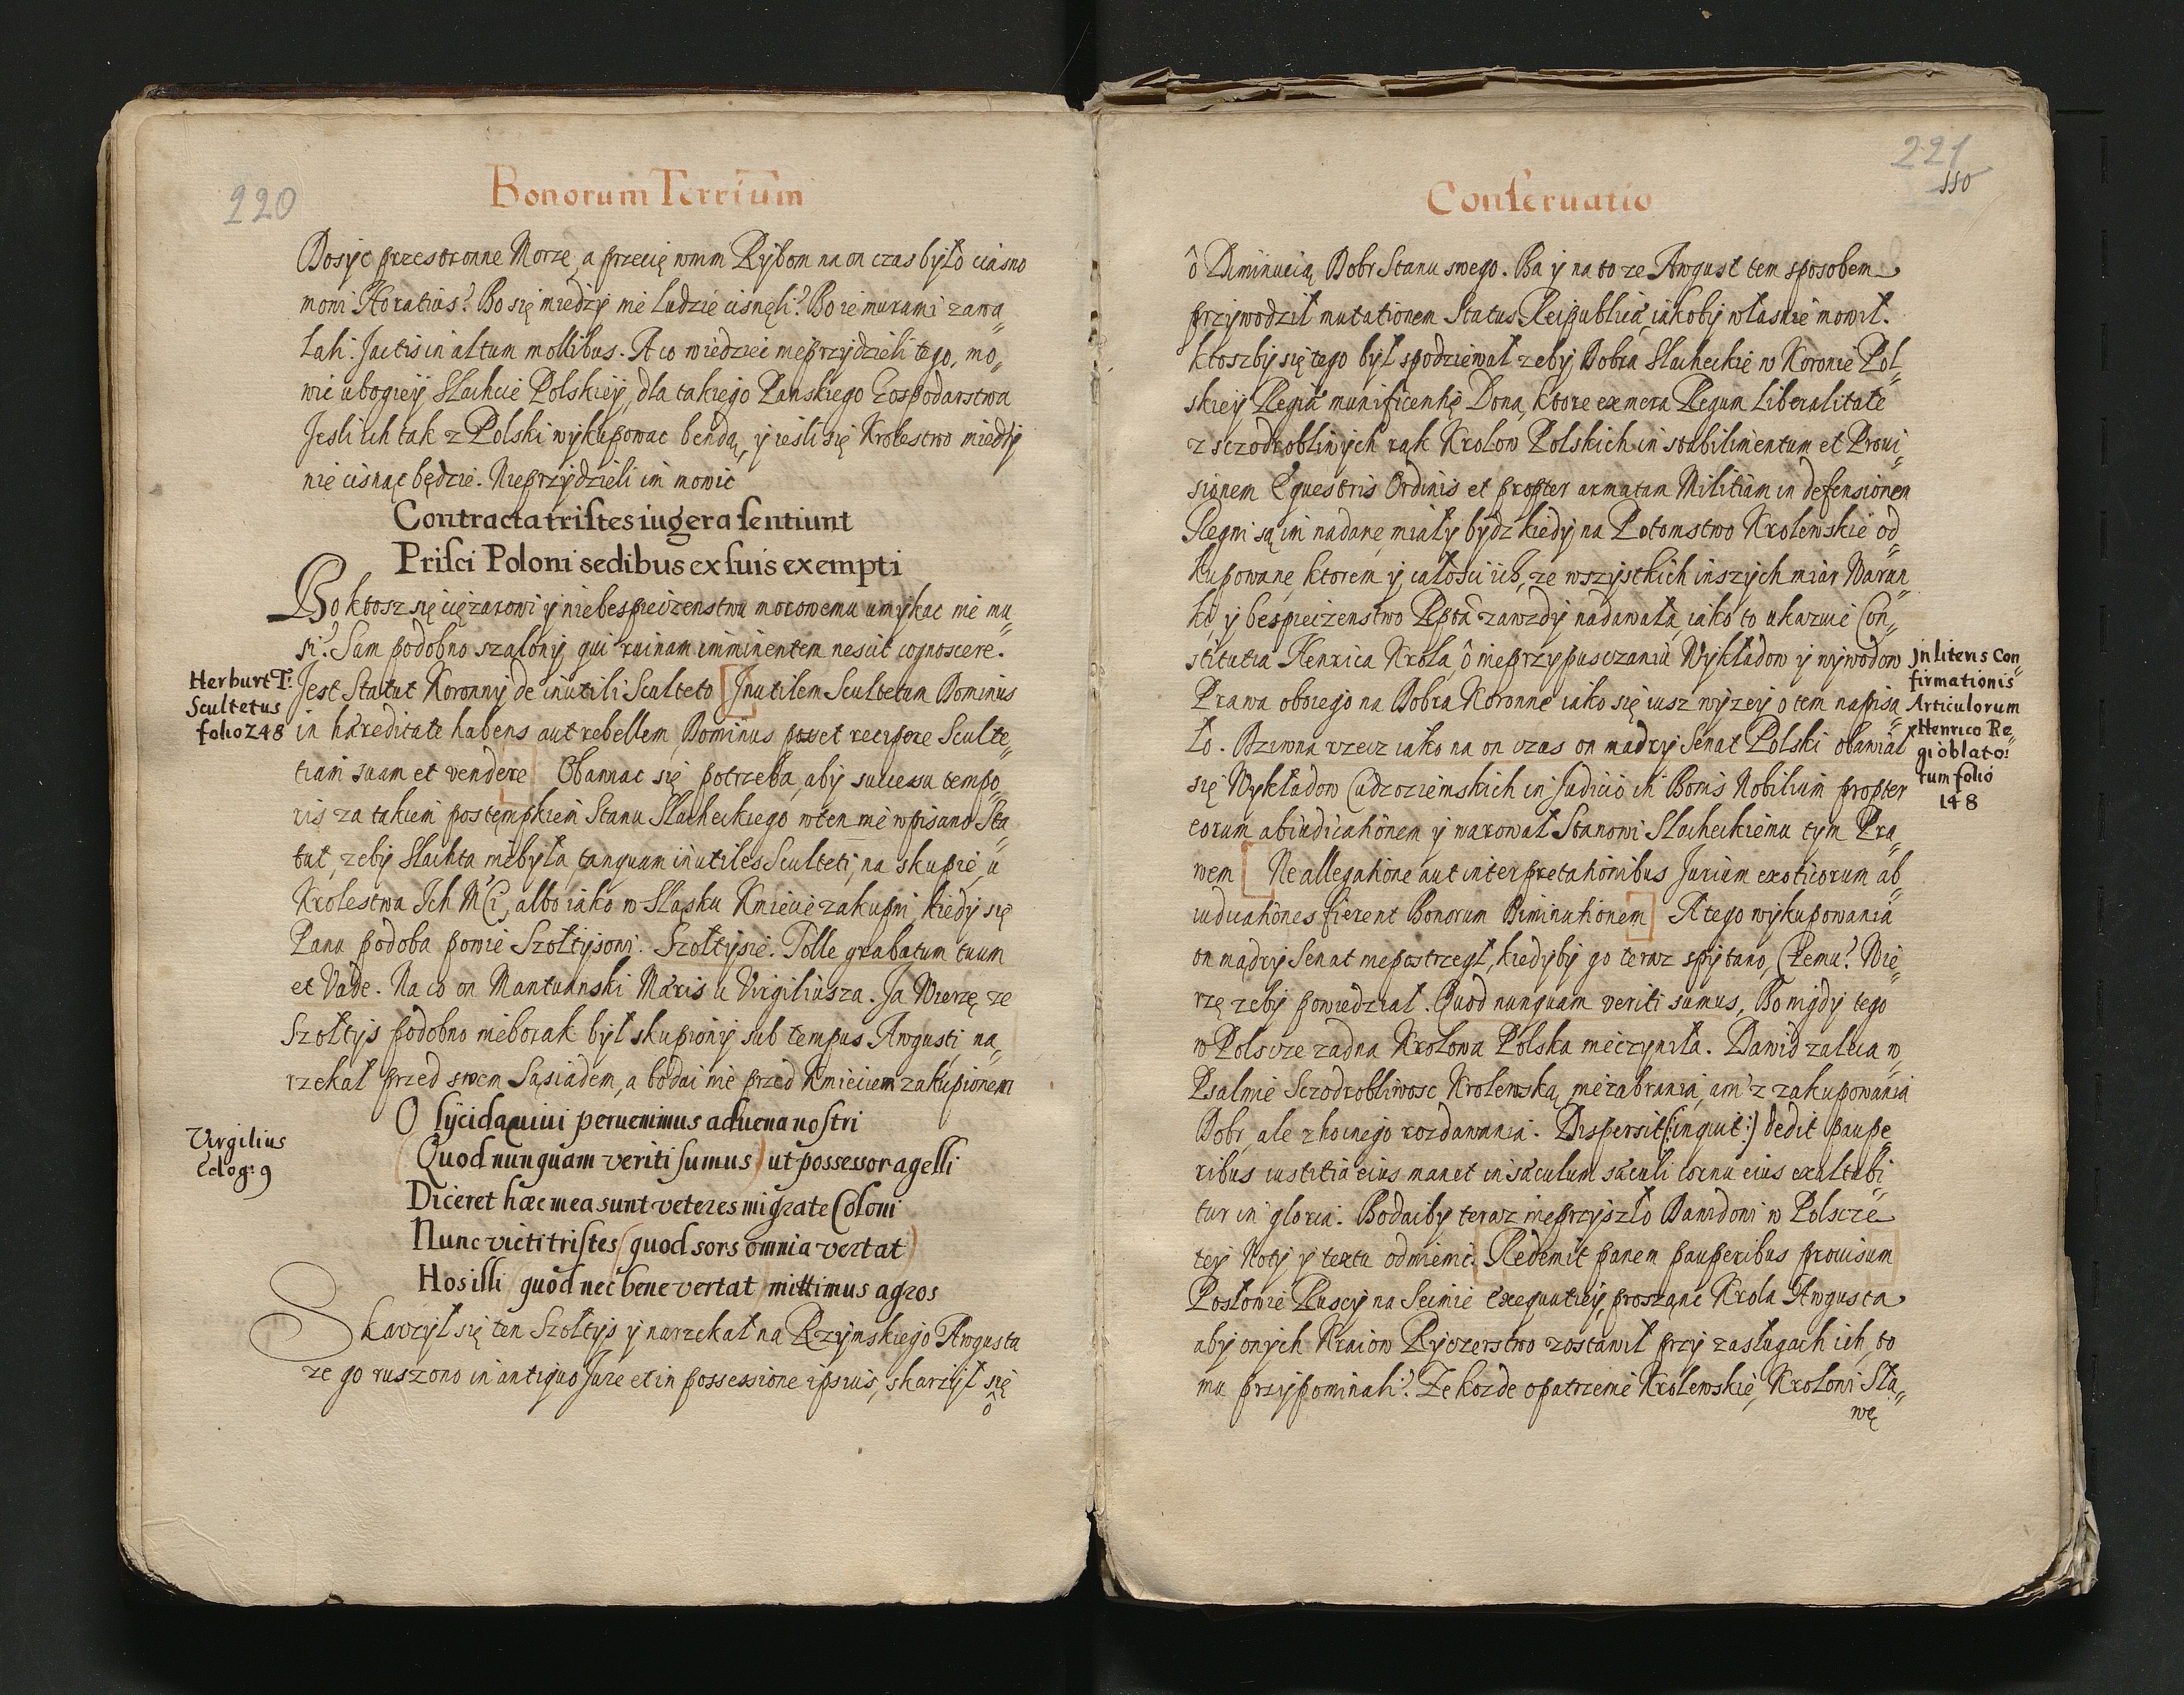 220
Bonorum Terrium
Dosyc przestronne Morze, a przecię wnim Rybom na on czas było ciasno
mowi Horatius? Bo się miedzy nie ludzie cisnęli? Bo ie murami zawa„
lali. Jactis in altum mollibus. A co wiedziec nieprzydzieli tego, mo„
wic ubogiey Slachcie Polskiey, dla takiego Panskiego Gospodarstwa
Jesli ich tak z Polski wykupowac bendą, y iesli się Krolestwo miedzy
nie cisnąc będzie. Nieprzydzieli im mowic
Contracta tristes iugera sentiunt
Prisci Poloni sedibus ex suis exempti
Bo ktosz się ciężarowi y niebespieczenstwu mocowemu umykac nie mu„
si? Sam podobno szalony, qui ruinam imminentem nescit cognoscere.
Jest Statut Koronny de inutili Sculteto [Inutilem Scultetum Dominus
in hæreditate habens aut rebellem, Dominus potest recipere Sculte„
tiam suam et vendere] Obawiac się potrzeba, aby successu tempo„
ris za takiem postępkiem Stanu Slacheckiego wten nie wpisano Sta„
tut, zeby Slachta niebyła, tanquam inutiles Sculteti, na skupie, u
Krolestwa Ich Mci, albo iako w Sląsku Kmiecie zakupni, kiedy się
Panu podoba powie Szołtysowi. Szołtysie. Tolle grabatum tuum
et Vade. Na co on Mantuanski Mæris u Virgiliusza. Ja Wierzę, ze
Szołtys podobno nieborak był skupiony sub tempus Awgusti, na„
rzekał przed swem Sąsiadem, a bodai nie przed Kmieciem zakupionem
O lycida viui peruenimus aduena nostri
(Quod nunquam veriti sumus) ut possessor agelli
Diceret hæc mea sunt veteres migrate Coloni
Nunc victi tristes (quod sors omnia vertat)
Hos illi (quod nec bene vertat) mittimus agros
Skarzył się ten Szołtys y narzekał na Rzymskiego Awgusta
ze go ruszono in antiquo Jure et in possessione ipsius, skarzył się
ô
Herburt T:
Scultetus
folio 248
Virgilius
Eclog: 9
221
110
Conseruatio
ô Diminucią Dobr Stanu swego. Ba y na to ze Awgust tem sposobem
przywodził mutationem Status Reipublicæ, iakoby własnie mowił.
ktoszby się tego był spodziewał zeby Dobra Slacheckie w Koronie Pol„
skiey Regiæ munificentię Dona, ktore ex mera Regum Liberalitate
z sczodrobliwych rąk Krolow Polskich in stabilimentum et Proui„
sionem Equestris Ordinis et propter armatam Militiam in defensionem
Regni są im nadane, miały bydz kiedy na Potomstwo Krolewskie od„
kupowane, ktorem y całosci ich, ze wszystkich inszych miar Warun„
ki, y bespieczenstwo Rptâ zawzdy nadawała, iako to ukazuie Con„
stitutia Henrica Krola, ô nieprzypusczaniu Wykładow y wywodow
Prawa oboiego na Dobra Koronne iako się iusz wyzey o tem napisa„
ło. Dziwna rzecz iako na on czas on madry Senat Polski obawiał
się Wykładow Cudzoziemskich in Judicio in Bonis Nobilium propter
eorum abiudicationem y warował Stanowi Slacheckiemu tym Pra„
wem [Ne allegatione aut interpretationibus Jurium exoticorum ab„
iudicationes fierent Bonorum Diminutionem] A tego wykupowania
on mądry Senat niepostrzegł, kiedyby go teraz spytano, Czemu? Wie„
rzę zeby powiedział. Quod nunquam veriti sumus, Bo nigdy tego
w Polscze zadna Krolowa Polska nieczyniła. Dawid zaleca w„
Psalmie Sczodrobliwosc Krolewską, niezabrania, ani z zakupowania
Dobr, ale z hoinego rozdawania. Dispersit (:inquit:) dedit paupe„
ribus iustitia eius manet in sæculum sæculi cornu eius exaltabi„
tur in gloria. Bodaiby teraz nieprzyszło Dawidowi w Polscze
tey Noty y textu odmienic. [Redemit panem pauperibus prouisum]
Posłowie Ruscy na Seimie Exequutiey, prosząnc Krola Awgusta
aby onych Kraiow Ryczerstwo zostawił przy zasługach ich, to
mu przypominali? Ze kozde opatrzenie Krolewskie, Krolowi Sła„
wę
Jn literis Con„
firmationis
Articulorum
Henrico Re„
gi oblato:
rum folio
148